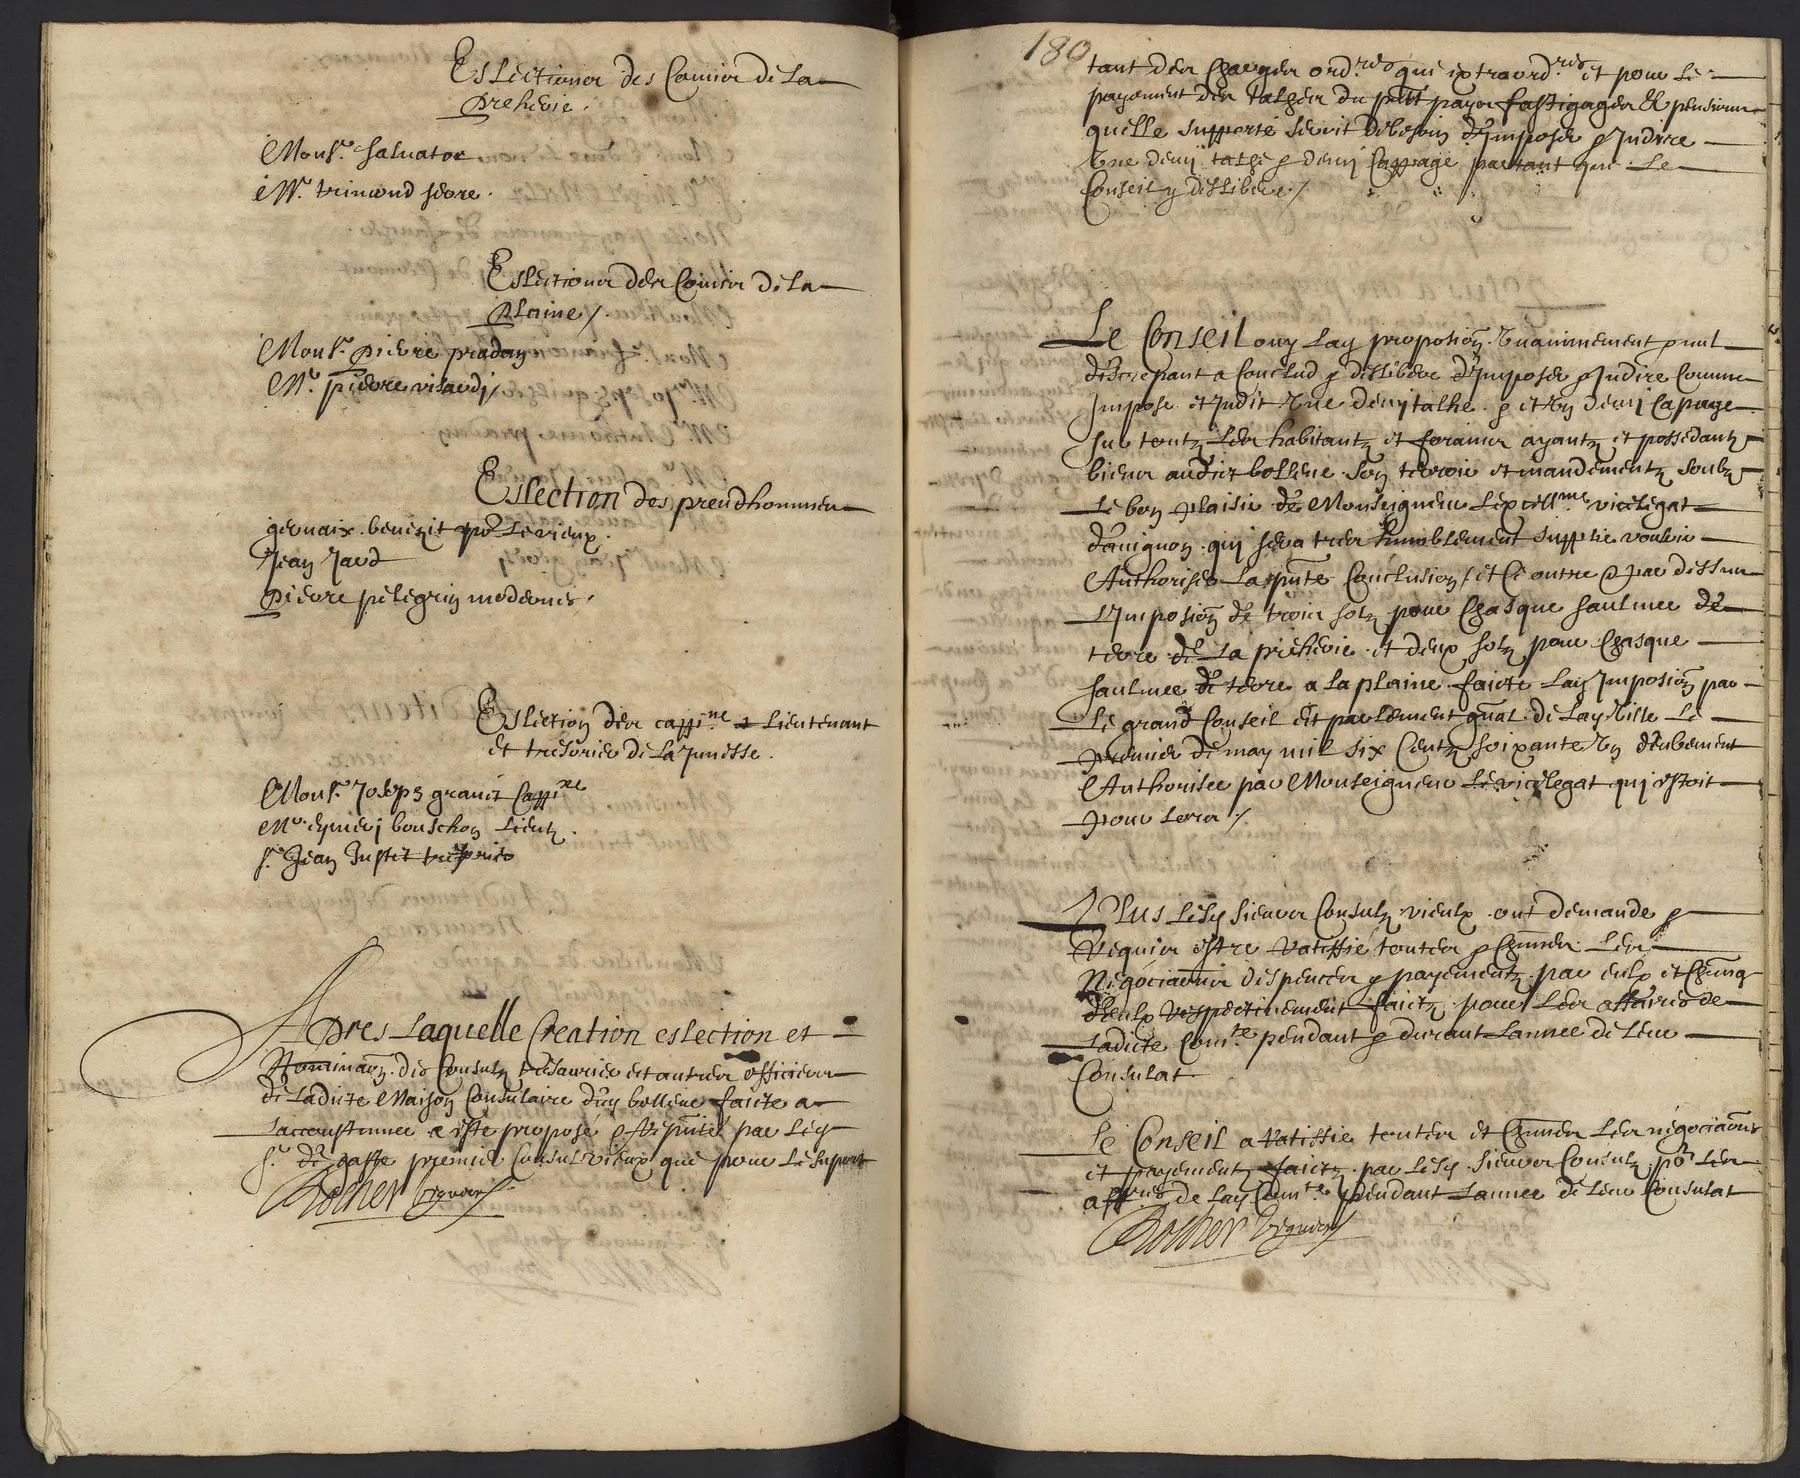 Eslections des Comis de la
preherie.
Mons.r salvator
M.r trimond serre.
Eslections des Comis de la
plaine /.
Mons.r pierre pradon
M.e pierre visaudj /
Eslection des preudhommes
gervaix benezit le vieux.
Jean Jaed
pierre pelegrin modernes.
Eslection des capp.ne Lieutenant
et tresorier de la Junesse.
Mons.r Joseph granit Capp.ne
M.e eymerj bouschon Lieut.
s.r Jean Justet tresorier
Apres Laquelle Creation eslection et
Nominaon des Consulz tresaurier et autres officiers
de Ladicte Maison Consulaire d'icy bollene faicte a
Laccoustumee a este proposé & represnté par Led
s.r de gaste premier Consul vieux que pour le suport
Rocher
180
tant des charges ord.res que extraord.res et pour le
payement des talhes du petit payas fastigages & pensions
quelle supporte seroit de besoin d'Imposer & Indire
Une demj talhe & demj Cappage partant que le
Conseil y dellibere /
Le Conseil ouy lad proposion Unanimement & nul
discrepant a Conclud & dellibere d'Imposer & Indire Comme
Impose et Indit Une demy talhe & et un demj Capage
sur toutz les habitantz et forains ayantz et possedantz
biens audict bollene son terroir et mandementz soubz
le bon plaisir de Monseigneur Lexcell.me vicelegat
d'avignon quj sera tres humblement supplie vouloir
Authoriser la pnte Conclusion / et Ce outre & par dessus
L'Imposion de trois solz pour chasque saulmee de
terre de la preherie et deux solz pour chasque
saulmee de terre a la plaine faicte lad Imposion par
le grand Conseil et parlement gnal de lad Ville le
premier de may mil six centz soixante un deubement
Authorisee par Monseigneur le vicelegat quj estoit
pour lors /.
Plus lesd sieurs Consulz vieulx ont demande &
requis estre ratiffié toutes & chunes les
Negociaons despences & payementz par eulx et chung
d'eulx respectivement faictz pour les affaires de
Ladicte Com.te pendant & durant Lannee de leur
Consulat
Le Conseil a ratiffie toutes et chunes les negociaons
et payementz faictz par lesd sieurs Consulz pr les
aff.res de lad Com.te pendant Lannee de leur Consulat
Rocher